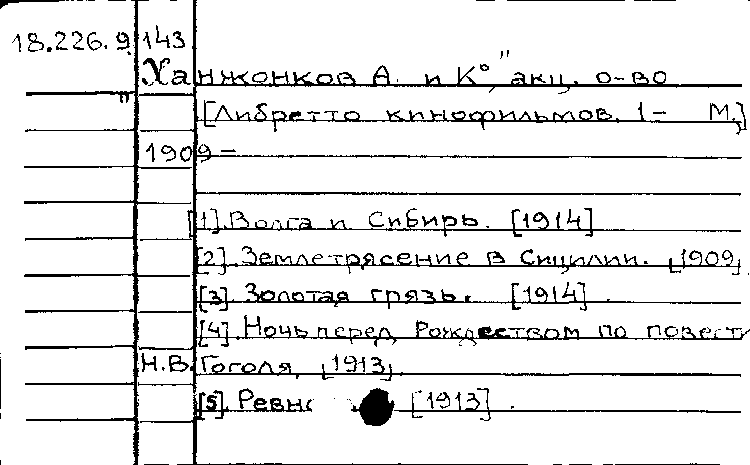 18.226.9 143
„Ханжонков А. и К°," акц. о-во
[Либретто кинофильмов. 1- М.,]
1909-
[1]. Волга и Сибирь. [1914]
[2]. Землетрясение в Сицилии. [1909]
[3]. Золотая грязь. [1914].
[4]. Ночь перед Рождеством по повести
Н.В. Гоголя. [1913].
[5]. [1913].